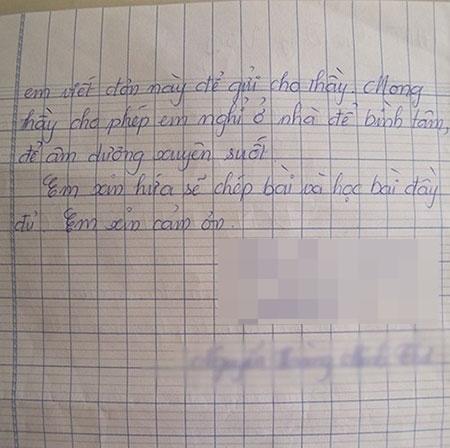 em viết đơn này để gửi cho thầy. Mong
thầy cho phép em nghỉ ở nhà để bình tâm,
để âm dương xuyên suốt.
Em xin hứa sẽ chép bài và học bài đầy
đủ. Em xin cảm ơn.